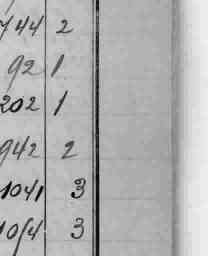 744 2
92 1
202 1
942 2
1041 3
1054 3